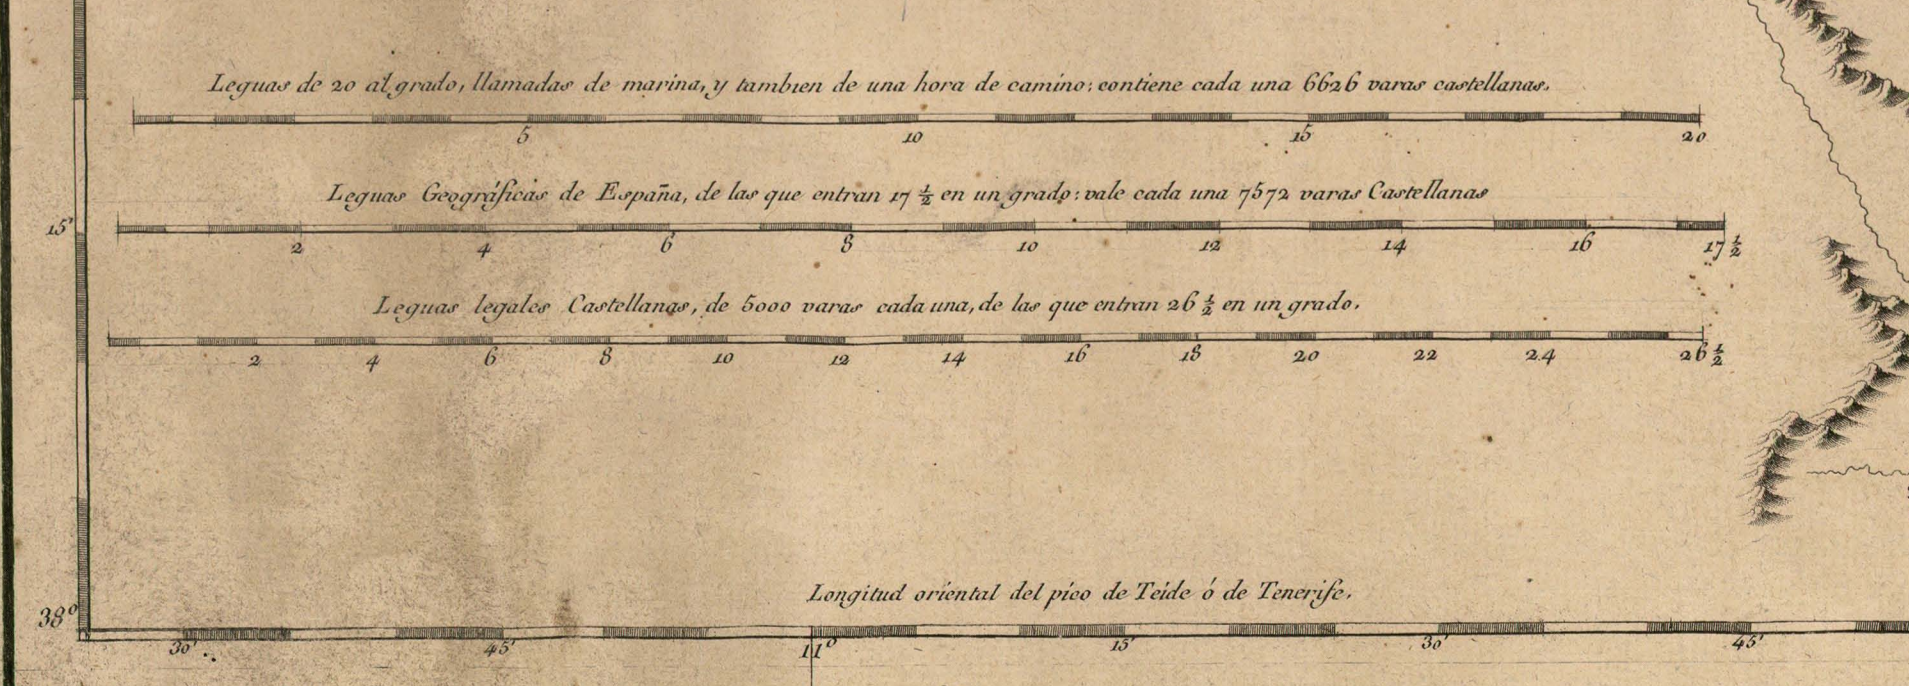 Leguas de 20 al grado, llamadas de marina, y tambien de una hora de camino: contiene cada una 6626 varas castellanas.
5 10 15 20
Leguas Geográficas de España, de las que entran 17 ½ en un grado: vale cada una 7572 varas Castellanas
15'
2 4 6 8 10 12 14 16 17 ½
Leguas legales Castellanas, de 5000 varas cada una, de las que entran 26 ½ en un grado.
2 4 6 8 10 12 14 16 18 20 22 24 26 ½
Longitud oriental del pico de Teide ó de Tenerife.
38°
30' 45' 11° 15' 30' 45'